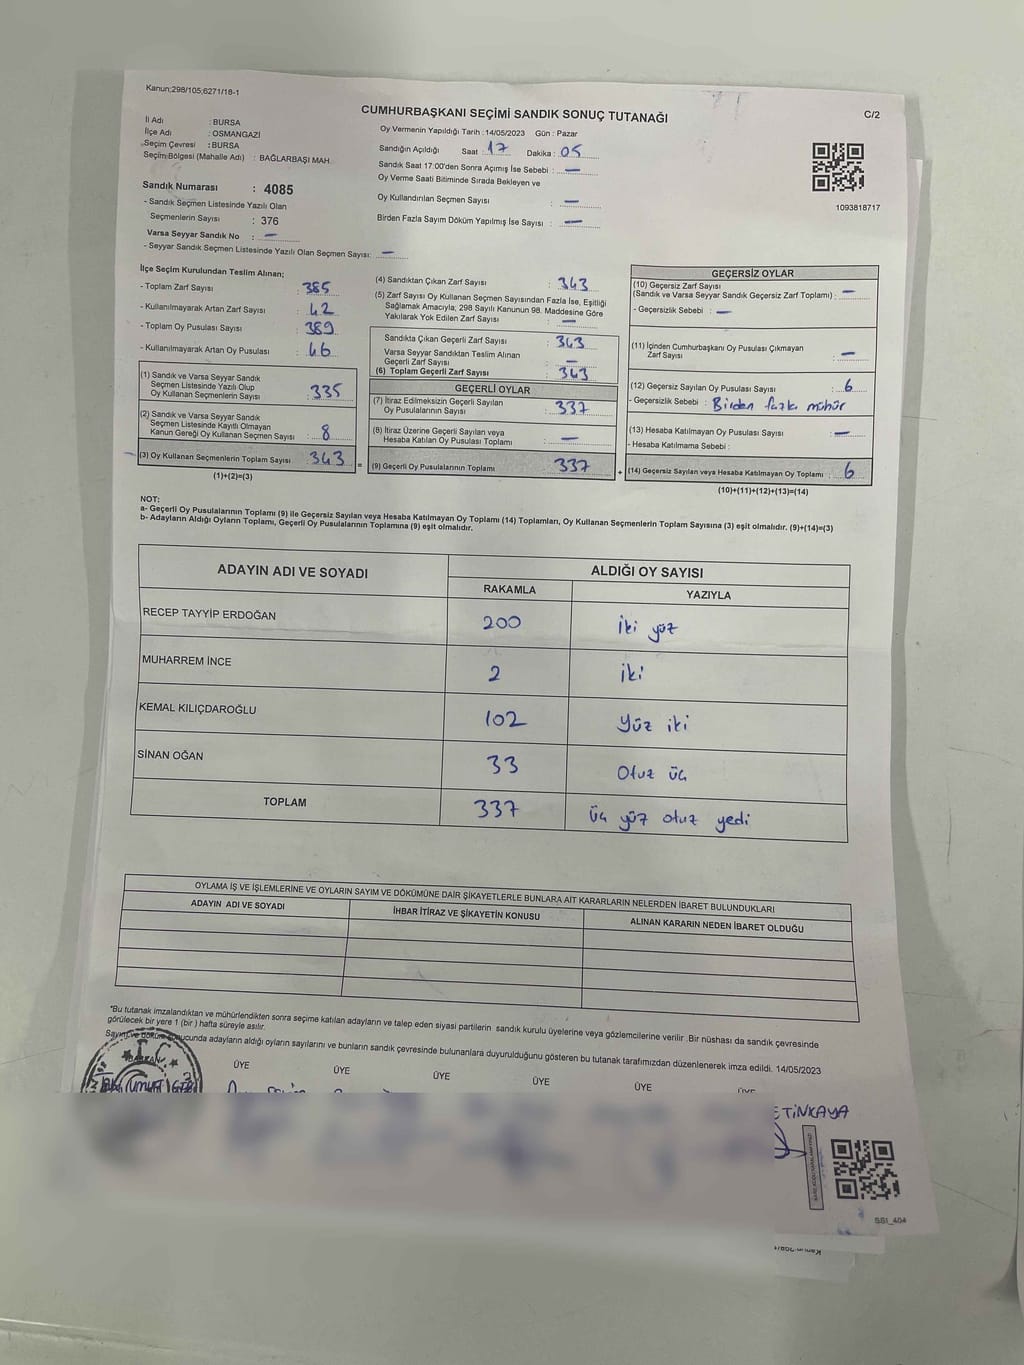 Kanun;298/105,6271/18-1
CUMHURBAŞKANI SEÇİMİ SANDIK SONUÇ TUTANAĞI
C/2
İl Adı : BURSA
İlçe Adı : OSMANGAZİ
Seçim Çevresi : BURSA
Seçim Bölgesi (Mahalle Adı) : BAĞLARBAŞI MAH.
Sandık Numarası : 4085
- Sandık Seçmen Listesinde Yazılı Olan
Seçmenlerin Sayısı : 376
Varsa Seyyar Sandık No : –
- Seyyar Sandık Seçmen Listesinde Yazılı Olan Seçmen Sayısı: –
Oy Vermenin Yapıldığı Tarih : 14/05/2023 Gün : Pazar
Sandığın Açıldığı Saat : 17 Dakika : 05
Sandık Saat 17:00'den Sonra Açımış İse Sebebi : –
Oy Verme Saati Bitiminde Sırada Bekleyen ve
Oy Kullandırılan Seçmen Sayısı : –
Birden Fazla Sayım Döküm Yapılmış İse Sayısı : –
1093818717
İlçe Seçim Kurulundan Teslim Alınan;
- Toplam Zarf Sayısı : 385
- Kullanılmayarak Artan Zarf Sayısı : 42
- Toplam Oy Pusulası Sayısı : 389
- Kullanılmayarak Artan Oy Pusulası : 46
(1) Sandık ve Varsa Seyyar Sandık
Seçmen Listesinde Yazılı Olup
Oy Kullanan Seçmenlerin Sayısı : 335
(2) Sandık ve Varsa Seyyar Sandık
Seçmen Listesinde Kayıtlı Olmayan
Kanun Gereği Oy Kullanan Seçmen Sayısı : 8
(3) Oy Kullanan Seçmenlerin Toplam Sayısı : 343
(1)+(2)=(3)
(4) Sandıktan Çıkan Zarf Sayısı : 343
(5) Zarf Sayısı Oy Kullanan Seçmen Sayısından Fazla İse, Eşitliği
Sağlamak Amacıyla; 298 Sayılı Kanunun 98. Maddesine Göre
Yakılarak Yok Edilen Zarf Sayısı : –
Sandıkta Çıkan Geçerli Zarf Sayısı : 343
Varsa Seyyar Sandıktan Teslim Alınan
Geçerli Zarf Sayısı : –
(6) Toplam Geçerli Zarf Sayısı : 343
GEÇERLİ OYLAR
(7) İtiraz Edilmeksizin Geçerli Sayılan
Oy Pusulalarının Sayısı : 337
(8) İtiraz Üzerine Geçerli Sayılan veya
Hesaba Katılan Oy Pusulası Toplamı : –
= (9) Geçerli Oy Pusulalarının Toplamı 337
GEÇERSİZ OYLAR
(10) Geçersiz Zarf Sayısı
(Sandık ve Varsa Seyyar Sandık Geçersiz Zarf Toplamı) : –
- Geçersizlik Sebebi : –
(11) İçinden Cumhurbaşkanı Oy Pusulası Çıkmayan
Zarf Sayısı : –
(12) Geçersiz Sayılan Oy Pusulası Sayısı : 6
- Geçersizlik Sebebi : Birden fazla mühür
(13) Hesaba Katılmayan Oy Pusulası Sayısı : –
- Hesaba Katılmama Sebebi :
+ (14) Geçersiz Sayılan veya Hesaba Katılmayan Oy Toplamı : 6
(10)+(11)+(12)+(13)=(14)
NOT:
a- Geçerli Oy Pusulalarının Toplamı (9) ile Geçersiz Sayılan veya Hesaba Katılmayan Oy Toplamı (14) Toplamları, Oy Kullanan Seçmenlerin Toplam Sayısına (3) eşit olmalıdır. (9)+(14)=(3)
b- Adayların Aldığı Oyların Toplamı, Geçerli Oy Pusulalarının Toplamına (9) eşit olmalıdır.
ADAYIN ADI VE SOYADI ALDIĞI OY SAYISI
RAKAMLA YAZIYLA
RECEP TAYYİP ERDOĞAN 200 iki yüz
MUHARREM İNCE 2 iki
KEMAL KILIÇDAROĞLU 102 yüz iki
SİNAN OĞAN 33 otuz üç
TOPLAM 337 üç yüz otuz yedi
OYLAMA İŞ VE İŞLEMLERİNE VE OYLARIN SAYIM VE DÖKÜMÜNE DAİR ŞİKAYETLERLE BUNLARA AİT KARARLARIN NELERDEN İBARET BULUNDUKLARI
ADAYIN ADI VE SOYADI İHBAR İTİRAZ VE ŞİKAYETİN KONUSU ALINAN KARARIN NEDEN İBARET OLDUĞU
*Bu tutanak imzalandıktan ve mühürlendikten sonra seçime katılan adayların ve talep eden siyasi partilerin sandık kurulu üyelerine veya gözlemcilerine verilir .Bir nüshası da sandık çevresinde
görülecek bir yere 1 (bir ) hafta süreyle asılır.
Sayım ve döküm sonucunda adayların aldığı oyların sayılarını ve bunların sandık çevresinde bulunanlara duyurulduğunu gösteren bu tutanak tarafımızdan düzenlenerek imza edildi. 14/05/2023
BAŞKAN ÜYE ÜYE ÜYE ÜYE ÜYE ÜYE
ETİNKAYA
SS1_404